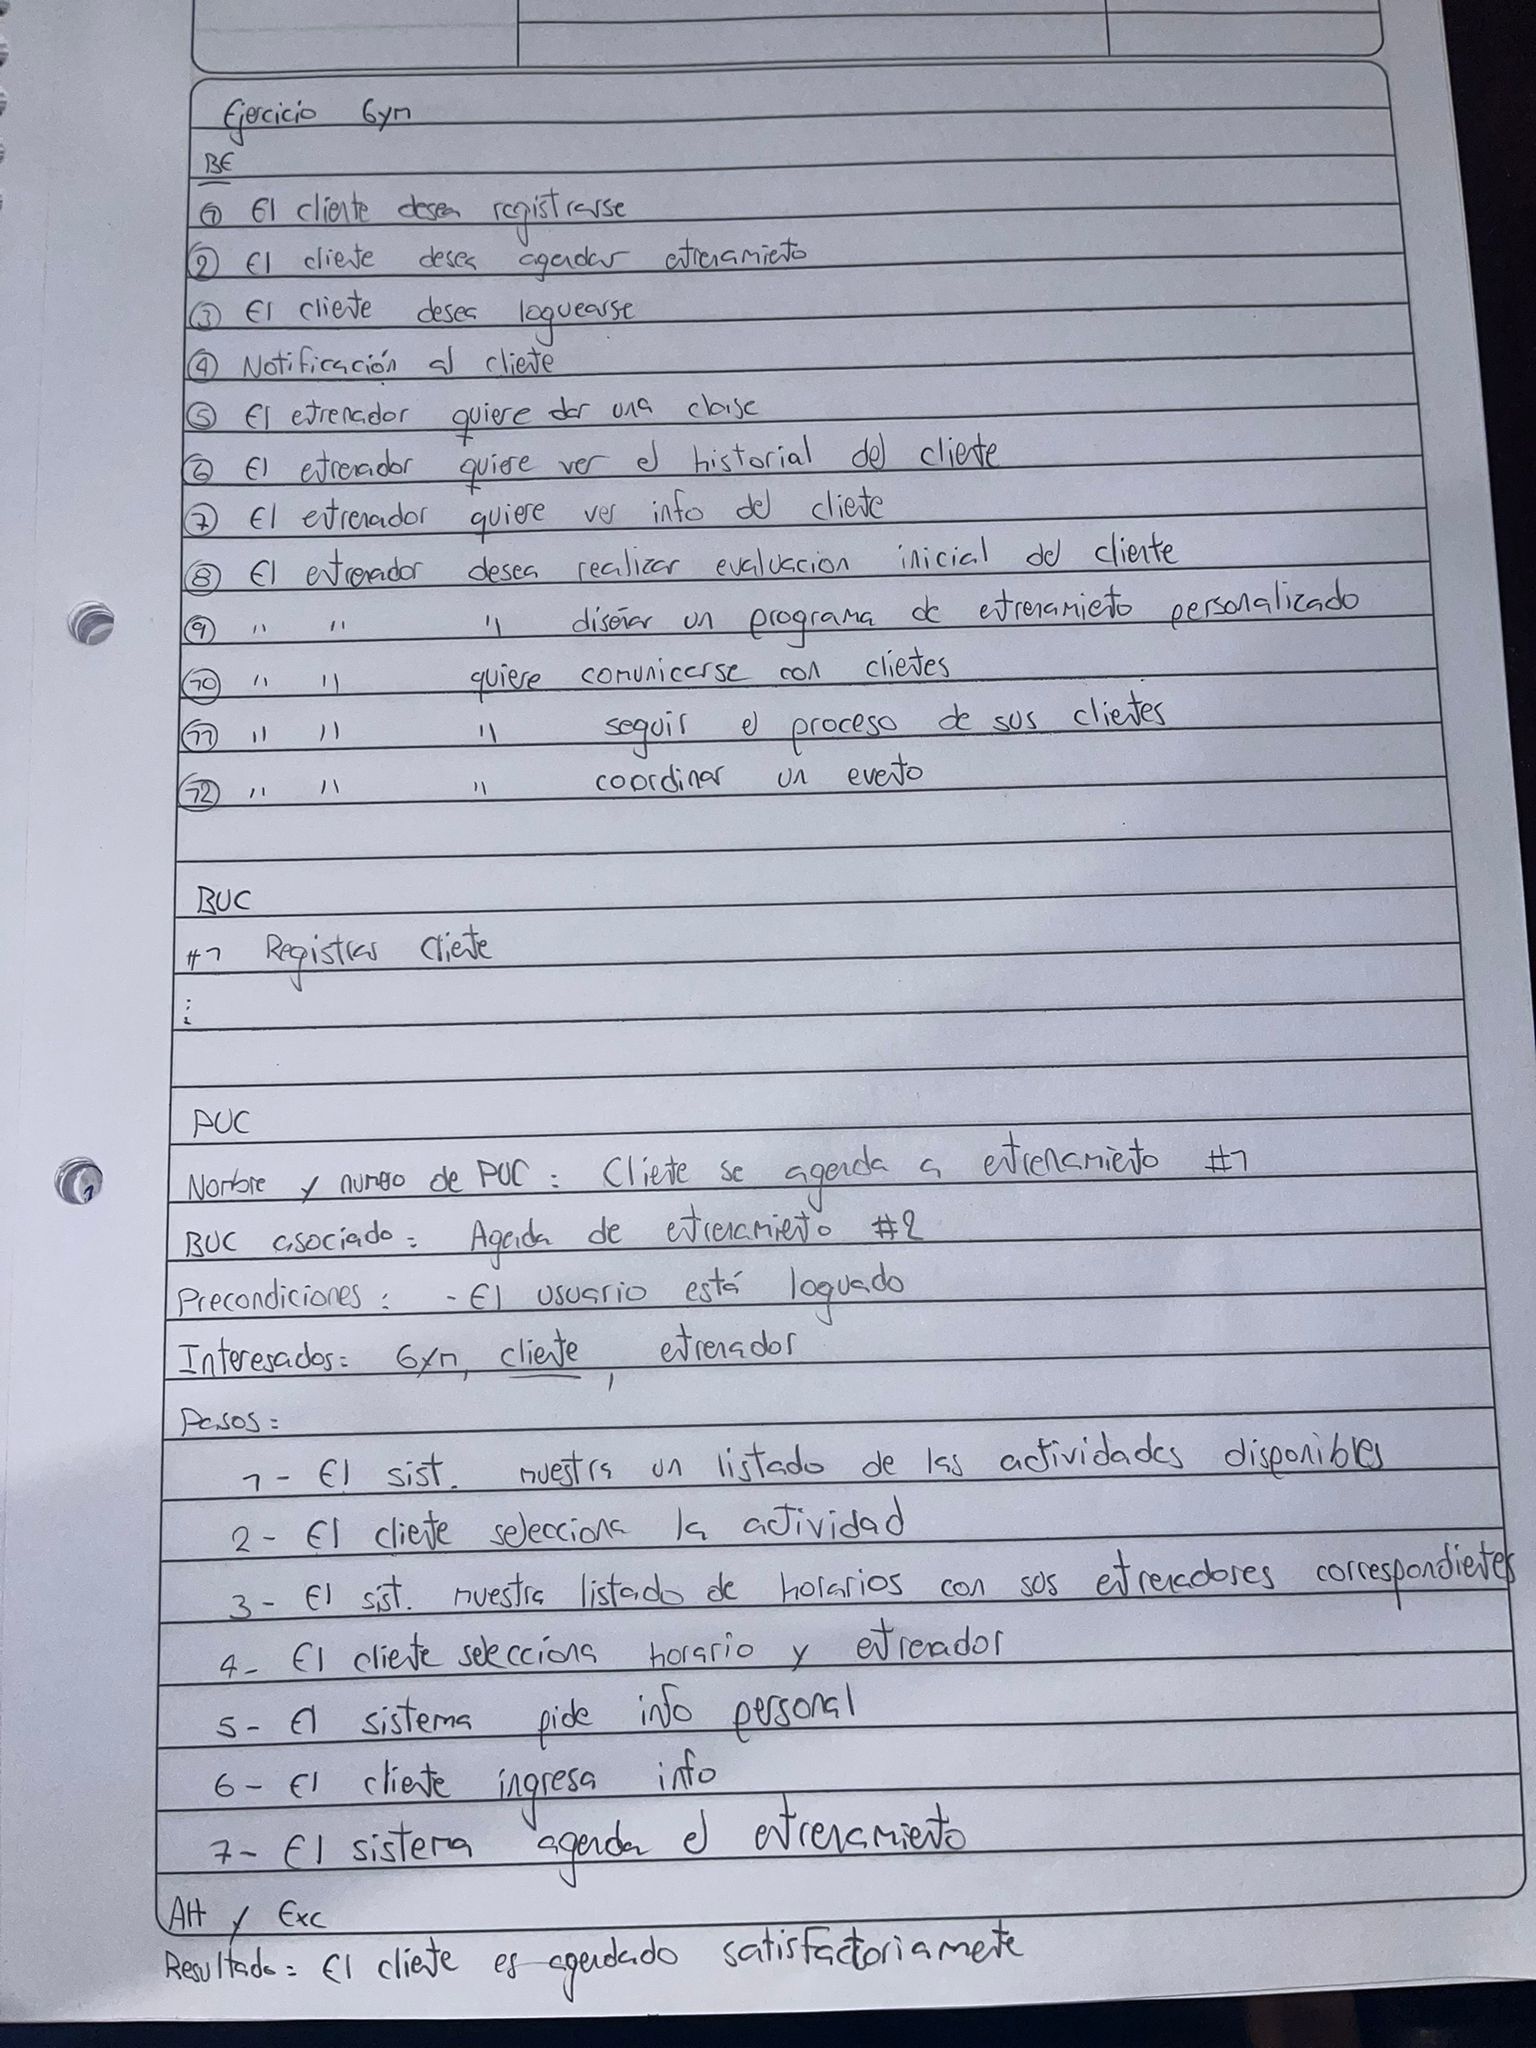 Ejercicio Gym
BE
① El cliente desea registrarse
② El cliente desea agendar entrenamiento
③ El cliente desea loguearse
④ Notificación al cliente
⑤ El entrenador quiere dar una clase
⑥ El entrenador quiere ver el historial del cliente
⑦ El entrenador quiere ver info del cliente
⑧ El entrenador desea realizar evaluacion inicial del cliente
⑨ " " " diseñar un programa de entrenamiento personalizado
⑩ " " quiere comunicarse con clientes
⑪ " " " seguir el proceso de sus clientes
⑫ " " " coordinar un evento
BUC
#1 Registrar Cliente
⋮
PUC
Nombre y numero de PUC: Cliente se agenda a entrenamiento #1
BUC asociado: Agenda de entrenamiento #2
Precondiciones: - El usuario está loguado
Interesados: Gym, cliente, entrenador
Pasos:
1- El sist. muestra un listado de las actividades disponibles
2- El cliente selecciona la actividad
3- El sist. muestra listado de horarios con sus entrenadores correspondientes
4- El cliente selecciona horario y entrenador
5- El sistema pide info personal
6- El cliente ingresa info
7- El sistema agenda el entrenamiento
Alt y Exc
Resultado: El cliente es agendado satisfactoriamente